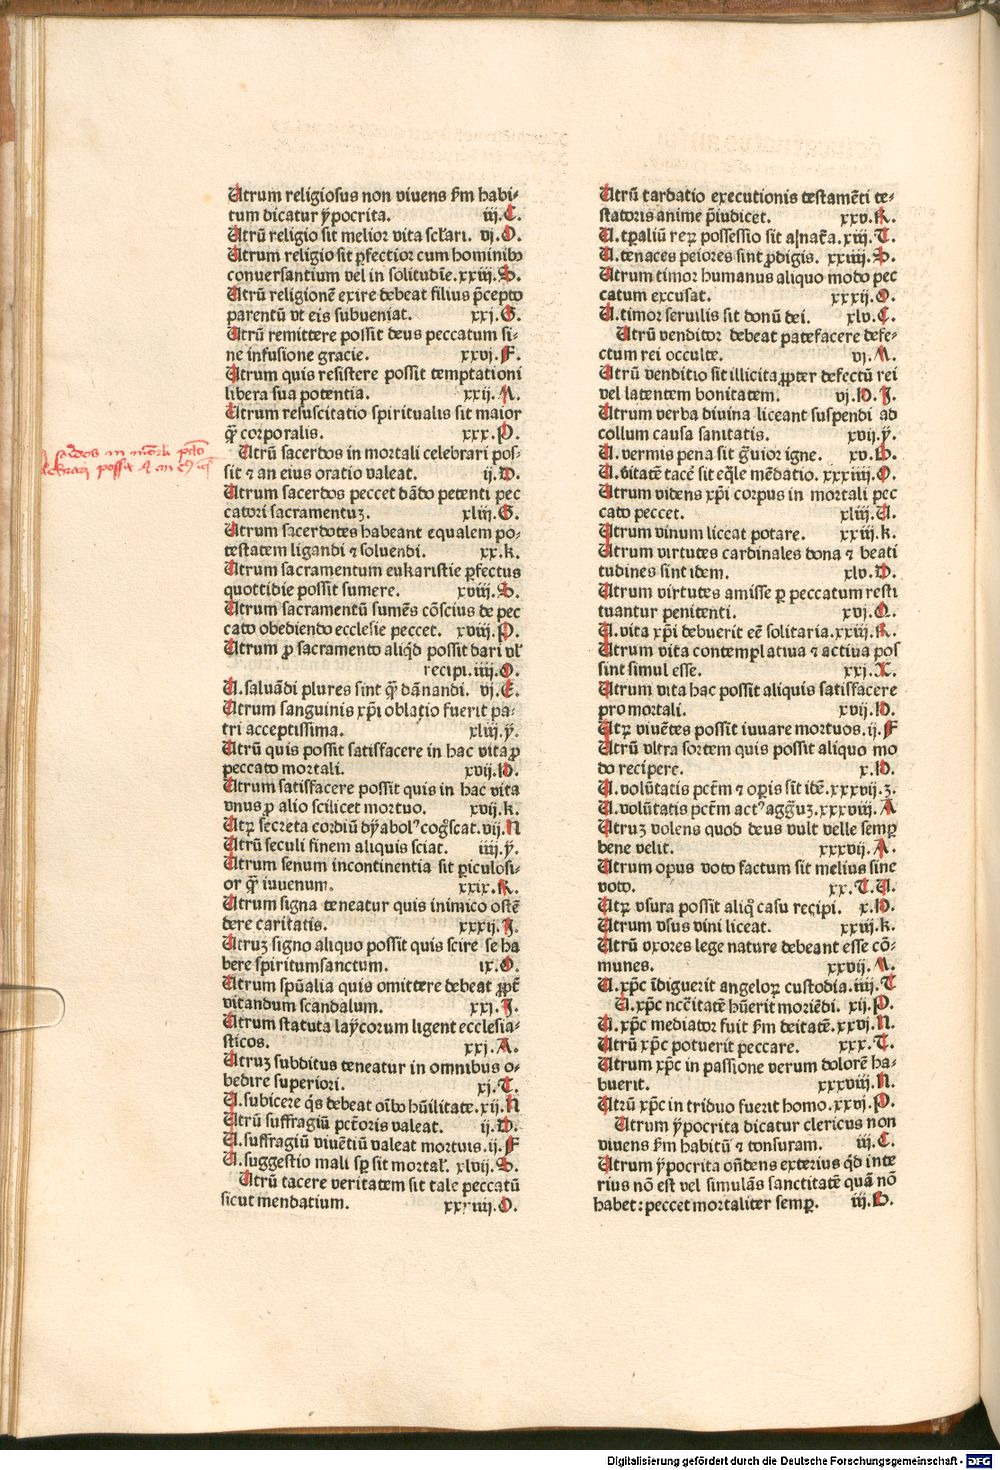 Utrum religiosus non vivens ẜm habi-
tum dicatur ẏpocrita. iij.C.
Utrū religio sit melior vita scl'ari. vj.O.
Utrum religio sit ꝑfectior cum hominibꝰ
conversantium vel in solitudīe.xxiij.S.
Utrū religionē exire debeat filius p̄cepto
parentū vt eis subueniat. xxj.G.
Utrū remittere possit deus peccatum si-
ne infusione gracie. xxvj.F.
Utrum quis resistere possit temptationi
libera sua potentia. xxij.A.
Utrum resuscitatio spiritualis sit maior
ꝙ̄ corporalis. xxx.P.
Utrū sacerdos in mortali celebrari pos-
sit ⁊ an eius oratio valeat. ij.D.
Utrum sacerdos peccet dādo petenti pec
catori sacramentuꝫ. xliij.G.
Utrum sacerdotes habeant equalem po-
testatem ligandi ⁊ soluendi. xx.k.
Utrum sacramentum eukaristie ꝑfectus
quottidie possit sumere. xviij.S.
Utrum sacramentū sumēs cōscius de pec
cato obediendo ecclesie peccet. xviij.P.
Utrum ꝓ sacramento aliq̇d possit dari vl'
recipi.iiij.O.
U. saluādi plures sint ꝙ̄ dānandi. vj.E.
Utrum sanguinis xp̄i oblatio fuerit pa-
tri acceptissima. xliij.ẏ.
Utrū quis possit satisfacere in hac vita ꝓ
peccato mortali. xvij.D.
Utrum satisfacere possit quis in hac vita
vnus ꝓ alio scilicet mortuo. xvij.k.
Utꝝ secreta cordiū dẏabolꝰ cogͦscat.vij.N
Utrū seculi finem aliquis sciat. iiij.ẏ.
Utrum senum incontinentia sit ꝑiculosi-
or ꝙ̄ iuuenum. xxix.R.
Utrum signa teneatur quis inimico ostē
dere caritatis. xxxij.J.
Utruꝫ signo aliquo possit quis scire se ha
bere spiritumsanctum. ix.O.
Utrum spūalia quis omittere debeat ꝓpt̄
vitandum scandalum. xxj.J.
Utrum statuta laẏcorum ligent ecclesia-
sticos. xxj.A.
Utruꝫ subditus teneatur in omnibus o-
bedire superiori. xj.T.
U. subicere q̇s debeat oībꝰ hūilitate.xij.N
Utrū suffragiū pct̄oris valeat. ij.D.
U. suffragiū viuētiū valeat mortuis.ij.F
U. suggestio mali sꝑ sit mortal'. xlvij.S.
Utrū tacere veritatem sit tale peccatū
sicut mendatium. xxxiiij.O.
sacerdos in mortali
celebrari possit ⁊ an
Utrū tardatio executionis testamēti te-
statoris anime p̄iudicet. xxv.K.
U. tꝑaliū reꝝ possessio sit a|nat̄a.xiij.T.
U. tenaces peiores sint ꝓdigis. xxiiij.S.
Utrum timor humanus aliquo modo pec
catum excusat. xxxij.O.
U. timor seruilis sit donū dei. xlv.C.
Utrū venditor debeat patefacere defe-
ctum rei occulte. vj.A.
Utrū venditio sit illicita ꝓpter defectū rei
vel latentem bonitatem. vj.D.J.
Utrum verba diuina liceant suspendi ad
collum causa sanitatis. xvij.ẏ.
U. vermis pena sit gͣuior igne. xv.B.
U. v̄itatē tacē sit eq̄le mēdatio. xxxiiij.O.
Utrum videns xp̄i corpus in mortali pec
cato peccet. xliij.U.
Utrum vinum liceat potare. xxiij.k.
Utrum virtutes cardinales dona ⁊ beati
tudines sint idem. xlv.D.
Utrum virtutes amisse ꝑ peccatum resti
tuantur penitenti. xvj.Q.
U. vita xp̄i debuerit eē solitaria.xxiij.R.
Utrum vita contemplatiua ⁊ actiua pos
sint simul esse. xxj.X.
Utrum vita hac possit aliquis satisfacere
pro mortali. xvij.D.
Utꝝ viuētes possit iuuare mortuos.ij.F
Utrū vltra sortem quis possit aliquo mo
do recipere. x.D.
U. volūtatis pct̄m ⁊ oꝑis sit idē.xxxvij.ʒ.
U. volūtatis pct̄m actꝰ agg̈uꝫ.xxxviij.A
Utruꝫ volens quod deus vult velle semꝑ
bene velit. xxxvij.A.
Utrum opus voto factum sit melius sine
voto. xx.T.U.
Utꝝ vsura possit aliqͦ casu recipi. x.D.
Utrum vsus vini liceat. xxiij.k.
Utrū vxores lege nature debeant esse cō-
munes. xxvij.A.
U. xp̄c īdiguerit angeloꝝ custodia.iiij.T
U. xp̄c nc̄citatē hūerit moriēdi. xij.P.
U. xp̄c mediator fuit ẜm deitatē.xxvj.N.
Utrū xp̄c potuerit peccare. xxx.T.
Utrum xp̄c in passione verum dolorē ha-
buerit. xxxviij.N.
Utrū xp̄c in triduo fuerit homo.xxvj.P.
Utrum ẏpocrita dicatur clericus non
viuens ẜm habitū ⁊ tonsuram. iij.C.
Utrum ẏpocrita oñdens exterius qd̄ inte
rius nō est vel simulās sanctitatē quā nō
habet: peccet mortaliter semꝑ. iij.B.
Digitalisierung gefördert durch die Deutsche Forschungsgemeinschaft - DFG